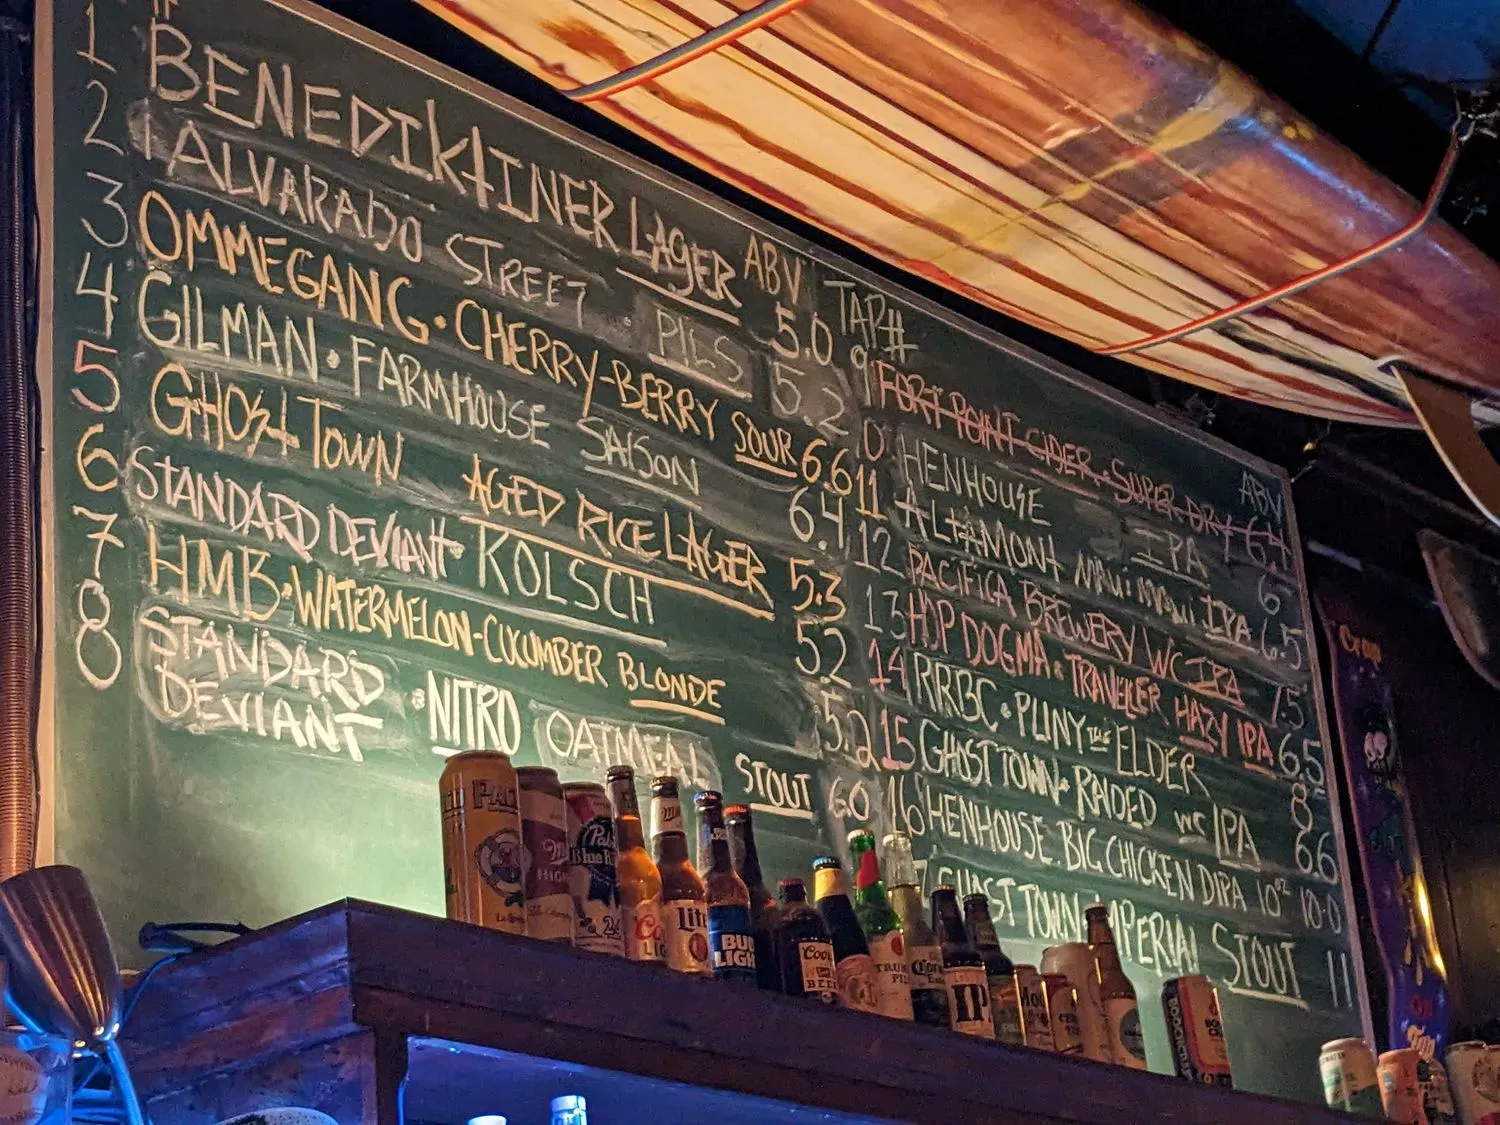 1 BENEDIKTINER LAGER 5.0
ABV
2 ALVARADO STREET · PILS 5.2
3 OMMEGANG · CHERRY-BERRY SOUR 6.6
4 GILMAN · FARMHOUSE SAISON 6.4
5 GHOST TOWN AGED RICE LAGER 5.3
6 STANDARD DEVIANT · KOLSCH 5.2
7 HMB · WATERMELON-CUCUMBER BLONDE 5.2
8 STANDARD
DEVIANT · NITRO OATMEAL STOUT 6.0
TAP#
ABV
9 FORT POINT CIDER · SUPER DRY 6.4
0 HENHOUSE IPA 6
11 ALTAMONT MAUI WAUI IPA 6.5
12 PACIFICA BREWERY WC IPA 7.5
13 HOP DOGMA · TRAVELLER HAZY IPA 6.5
14 RRBC · PLINY THE ELDER 8
15 GHOST TOWN · RAIDED WC IPA 6.6
16 HENHOUSE · BIG CHICKEN DIPA 10oz 10.0
7 GHOST TOWN · IMPERIAL STOUT 11
Pabst
Blue
24
Lite
BUD
LIGHT
Coors
BEER
TRUMER
PILS
Corona